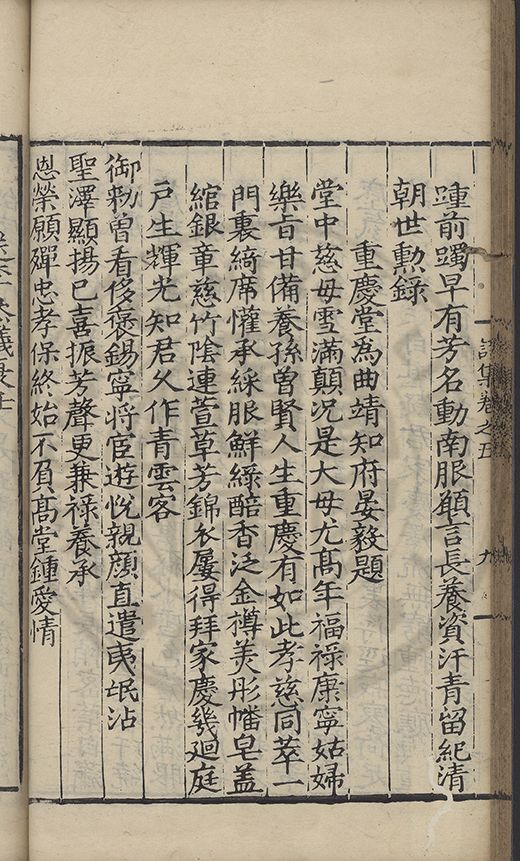 詩集卷之五
九
踵前躅早有芳名動南服顧言長養資汗青留紀清
朝世勲錄
重慶堂為曲靖知府晏毅題
堂中慈母雪滿顛况是大母尤高年福祿康寧姑婦
樂旨甘備養孫曾賢人生重慶有如此孝慈同萃一
門裏綺席懽承綵服鮮綠醅香泛金樽羙彤幡皂盖
綰銀章慈竹陰連萱草芳錦衣屢得拜家慶幾廻庭
戶生輝光知君久作青雲客
御勑曽看侈褒錫寧將宦遊恱親顔直遣夷氓沾
聖澤顯揚已喜振芳聲更兼祿養承
恩榮願殫忠孝保終始不負髙堂鍾愛情